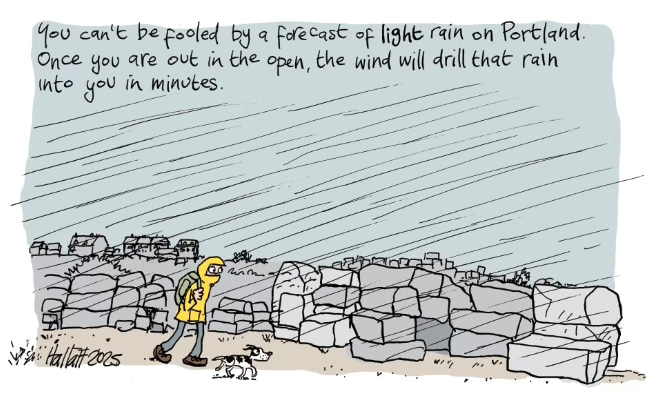 You can't be fooled by a forecast of light rain on Portland.
Once you are out in the open, the wind will drill that rain
into you in minutes.
Hallatt 2025